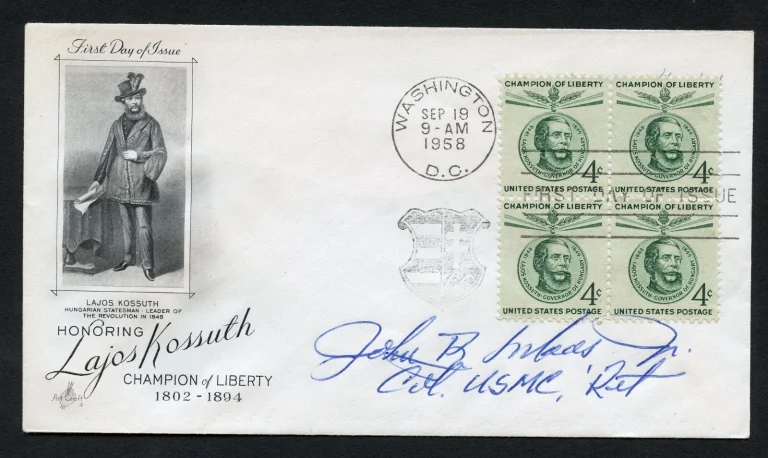 First Day of Issue
LAJOS KOSSUTH
HUNGARIAN STATESMAN - LEADER OF
THE REVOLUTION IN 1848
HONORING
Lajos Kossuth
CHAMPION of LIBERTY
1802 - 1894
Art Craft
WASHINGTON
SEP 19
9 - AM
1958
D.C.
CHAMPION OF LIBERTY
1802 1894 LAJOS KOSSUTH-GOVERNOR OF HUNGARY 1849
4c
UNITED STATES POSTAGE
CHAMPION OF LIBERTY
1802 1894 LAJOS KOSSUTH-GOVERNOR OF HUNGARY 1849
4c
UNITED STATES POSTAGE
FIRST DAY OF ISSUE
CHAMPION OF LIBERTY
1802 1894 LAJOS KOSSUTH-GOVERNOR OF HUNGARY 1849
4c
UNITED STATES POSTAGE
CHAMPION OF LIBERTY
1802 1894 LAJOS KOSSUTH-GOVERNOR OF HUNGARY 1849
4c
UNITED STATES POSTAGE
John B. Jr.
Col. USMC, Ret